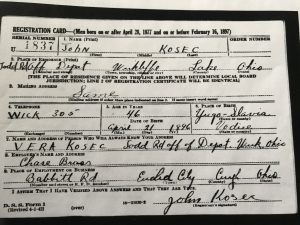 REGISTRATION CARD—(Men born on or after April 28, 1877 and on or before February 16, 1897)
SERIAL NUMBER 1. NAME (Print) ORDER NUMBER
U 1837 JOHN KOSEC
(First) (Middle) (Last)
2. PLACE OF RESIDENCE (Print)
Depot Wickliffe Lake Ohio
(Number and street) (Town, township, village, or city) (County) (State)
[THE PLACE OF RESIDENCE GIVEN ON THE LINE ABOVE WILL DETERMINE LOCAL BOARD
JURISDICTION; LINE 2 OF REGISTRATION CERTIFICATE WILL BE IDENTICAL]
3. MAILING ADDRESS
Same
[Mailing address if other than place indicated on line 2. If same insert word same]
4. TELEPHONE 5. AGE IN YEARS 6. PLACE OF BIRTH
Wick 305 46 Yugo-Slavia
DATE OF BIRTH
April 1896
7. NAME AND ADDRESS OF PERSON WHO WILL ALWAYS KNOW YOUR ADDRESS
VERA KOSEC Todd Rd off of Depot Wick Ohio
8. EMPLOYER'S NAME AND ADDRESS
Chase Brass
9. PLACE OF EMPLOYMENT OR BUSINESS
Babbitt Rd Euclid City Cuy Ohio
(Number and street or R. F. D. number) (Town) (County) (State)
I AFFIRM THAT I HAVE VERIFIED ABOVE ANSWERS AND THAT THEY ARE TRUE.
D. S. S. Form 1
(Revised 4-1-42) John Kosec